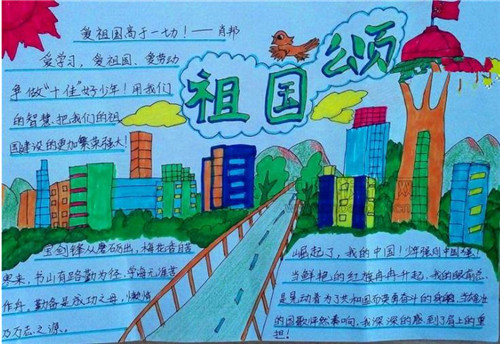 爱祖国高于一切！——肖邦
爱学习，爱祖国、爱劳动
争做“十佳”好少年！用我们
的智慧，把我们的祖
国建设的更加繁荣强大！
祖国颂
宝剑锋从磨砺出，梅花香自
苦寒来，书山有路勤为径，学海无涯苦
作舟，勤奋是成功之母，懒惰
乃万恶之源。
崛起了，我的中国！少年强则中国强！
当鲜艳的红旗冉冉升起，我的眼前总
是晃动着为了共和国而英勇奋斗的
的国歌
奏响，我深深的感到了肩上的重
担！